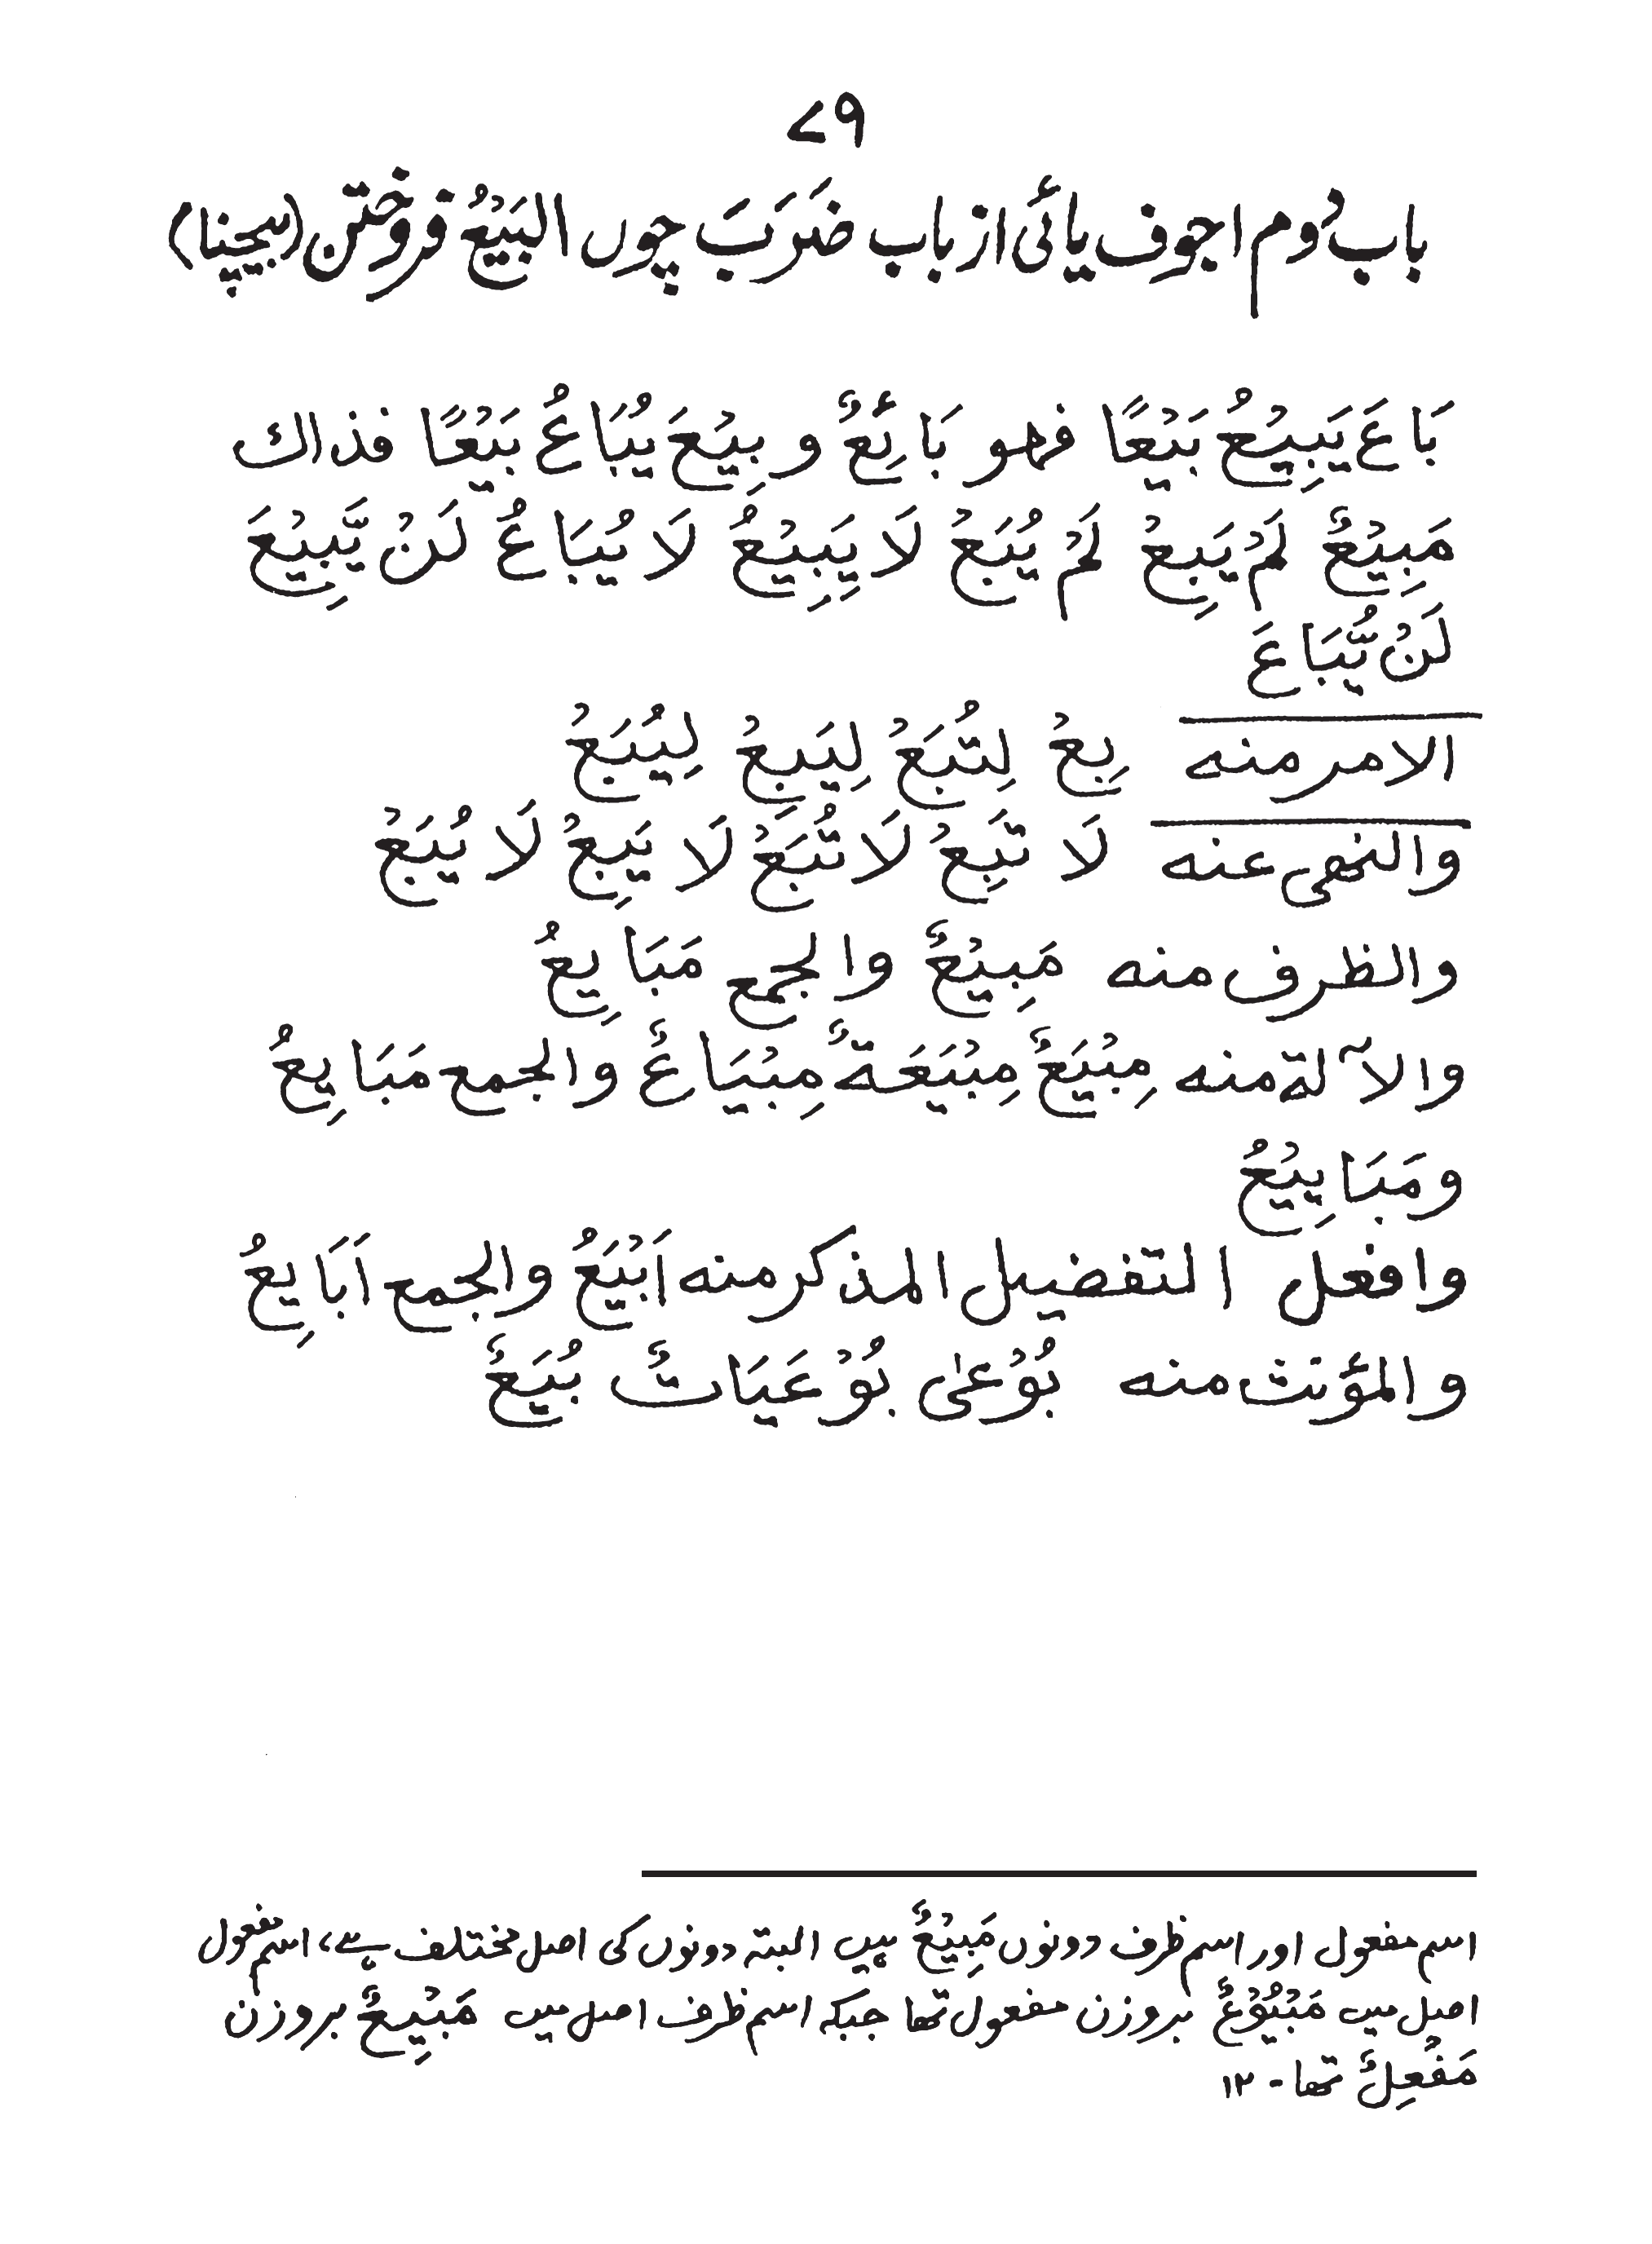 ۷۹
باب دُوم اجوف یائی از باب ضَرَبَ چوں البَیْعُ فروختن (بیچنا)
بَاعَ يَبِيْعُ بَيْعًا فهو بَائِعٌ و بِيْعَ يُبَاعُ بَيْعًا فذاك
مَبِيْعٌ لَمْ يَبِعْ لَمْ يُبَعْ لَا يَبِيْعُ لَا يُبَاعُ لَنْ يَّبِيْعَ
لَنْ يُّبَاعَ
الامر منه بِعْ لِتُبَعْ لِيَبِعْ لِيُبَعْ
والنهى عنه لَا تَبِعْ لَا تُبَعْ لَا يَبِعْ لَا يُبَعْ
والظرف منه مَبِيْعٌ والجمع مَبَايِعُ
والآلة منه مِبْيَعٌ مِبْيَعَةٌ مِبْيَاعٌ والجمع مَبَايِعُ
ومَبَايِيْعُ
وافعل التفضيل المذكر منه اَبْيَعُ والجمع اَبَايِعُ
والمؤنث منه بُوْعىٰ بُوْعَيَاتٌ بُيَعٌ
اسم مفعول اور اسم ظرف دونوں مَبِیْعٌ ہیں البتہ دونوں کی اصل مختلف ہے، اسم مفعول
اصل میں مَبْیُوْعٌ بروزن مفعول تھا جبکہ اسم ظرف اصل میں مَبْیِعٌ بروزن
مَفْعِلٌ تھا - ۱۲